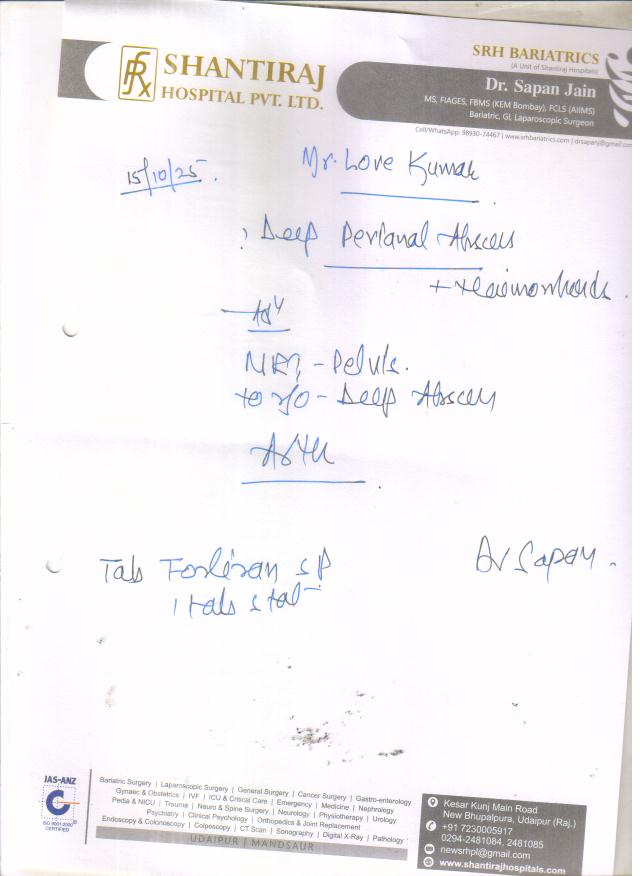 SHANTIRAJ
HOSPITAL PVT. LTD.
SRH BARIATRICS
(A Unit of Shantiraj Hospitals)
Dr. Sapan Jain
MS, FIAGES, FBMS (KEM Bombay), FCLS (AIIMS)
Bariatric, GI, Laparoscopic Surgeon
Cell/WhatsApp: 98930-74467 | www.srhbariatrics.com | drsapanj@gmail.com
15/10/25.
Mr. Love Kumar
? Deep Perianal Abscess
+ Haemorrhoids.
Adv
MRI - Pelvis.
to r/o - Deep Abscess
Tab SP
1 tab stat
Dr Sapan.
JAS-ANZ
C
ISO 9001:2000
CERTIFIED
Bariatric Surgery | Laparoscopic Surgery | General Surgery | Cancer Surgery | Gastro-enterology
Gynaec & Obstetrics | IVF | ICU & Critical Care | Emergency | Medicine | Nephrology
Pedia & NICU | Trauma | Neuro & Spine Surgery | Neurology | Physiotherapy | Urology
Psychiatry | Clinical Psychology | Orthopedics & Joint Replacement
Endoscopy & Colonoscopy | Colposcopy | CT Scan | Sonography | Digital X-Ray | Pathology
UDAIPUR | MANDSAUR
Kesar Kunj Main Road
New Bhupalpura, Udaipur (Raj.)
+91 7230005917
0294-2481084, 2481085
newsrhpl@gmail.com
www.shantirajhospitals.com